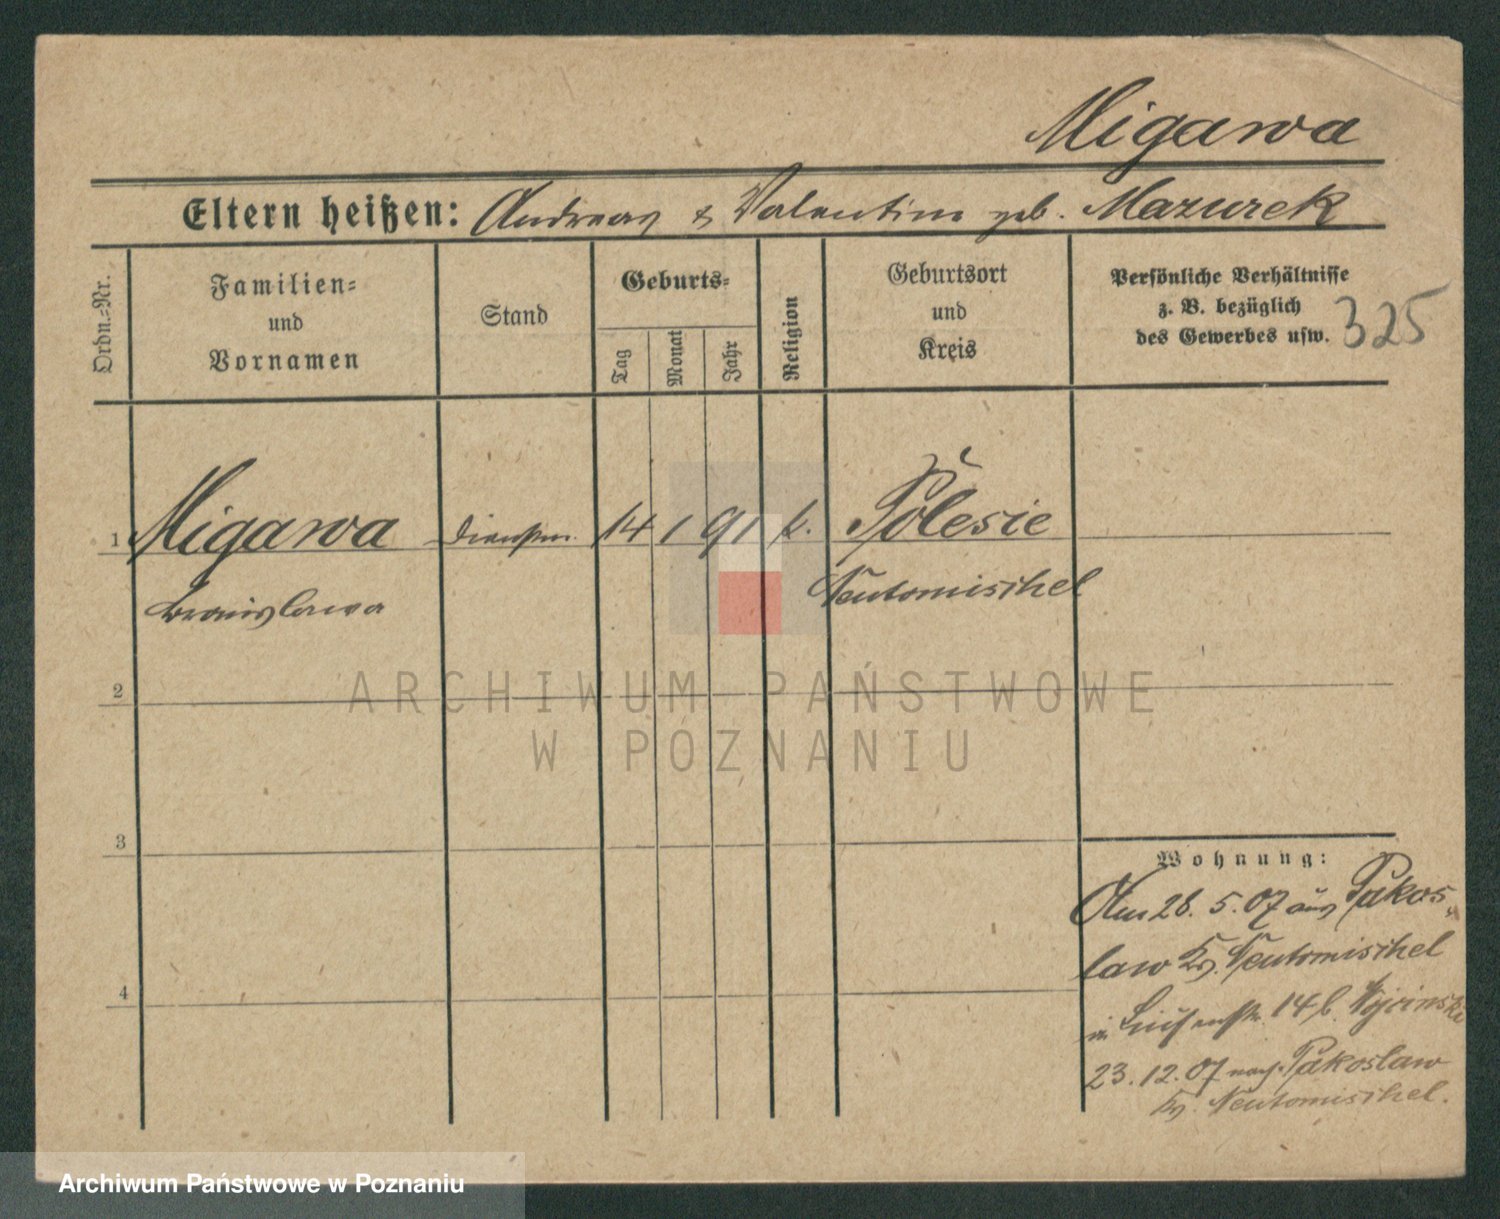 Migawa
Eltern heißen: Andreas & Valentine geb. Mazurek
Ordn.-Nr.
Familien-
und
Vornamen
Stand
Geburts-
Tag
Monat
Jahr
Religion
Geburtsort
und
Kreis
Persönliche Verhältnisse
z. B. bezüglich
des Gewerbes usw.
325
1 Migawa 14 1 91 k. Polesie
Bronislawa Neutomischel
2
3
4
Wohnung:
Am 28. 5. 07 aus Pakos
law Krs. Neutomischel
in Luisenstr. 14 b.
23. 12. 07 nach Pakoslaw
Krs. Neutomischel.
ARCHIWUM PAŃSTWOWE
W POZNANIU
Archiwum Państwowe w Poznaniu